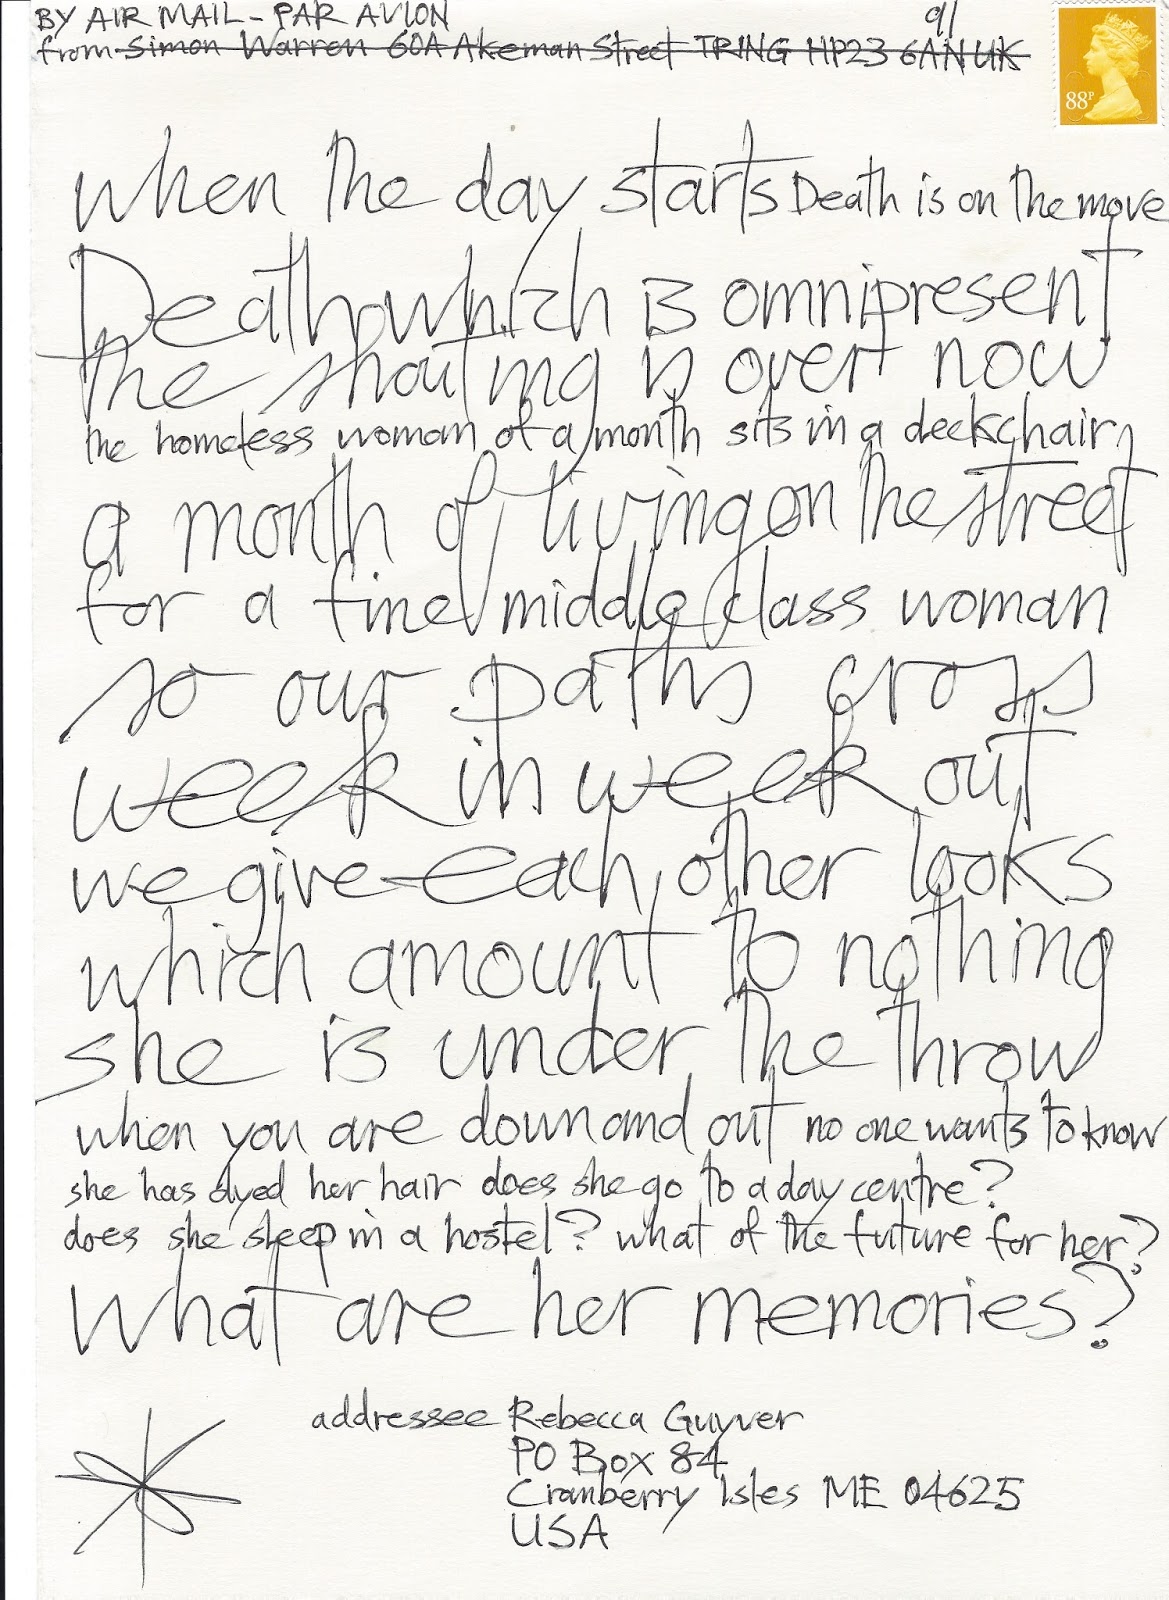 BY AIR MAIL - PAR AVION 91
from Simon Warren 60A Akeman Street TRING HP23 6AN UK
88P
when the day starts Death is on the move
Death which is omnipresent
the shouting is over now
the homeless woman of a month sits in a deckchair
a month of living on the street
for a fine middle class woman
so our paths cross
week in week out
we give each other looks
which amount to nothing
she is under the throw
when you are down and out no one wants to know
she has dyed her hair does she go to a day centre?
does she sleep in a hostel? what of the future for her?
What are her memories?
addressee Rebecca Guyver
PO Box 84
Cranberry Isles ME 04625
USA